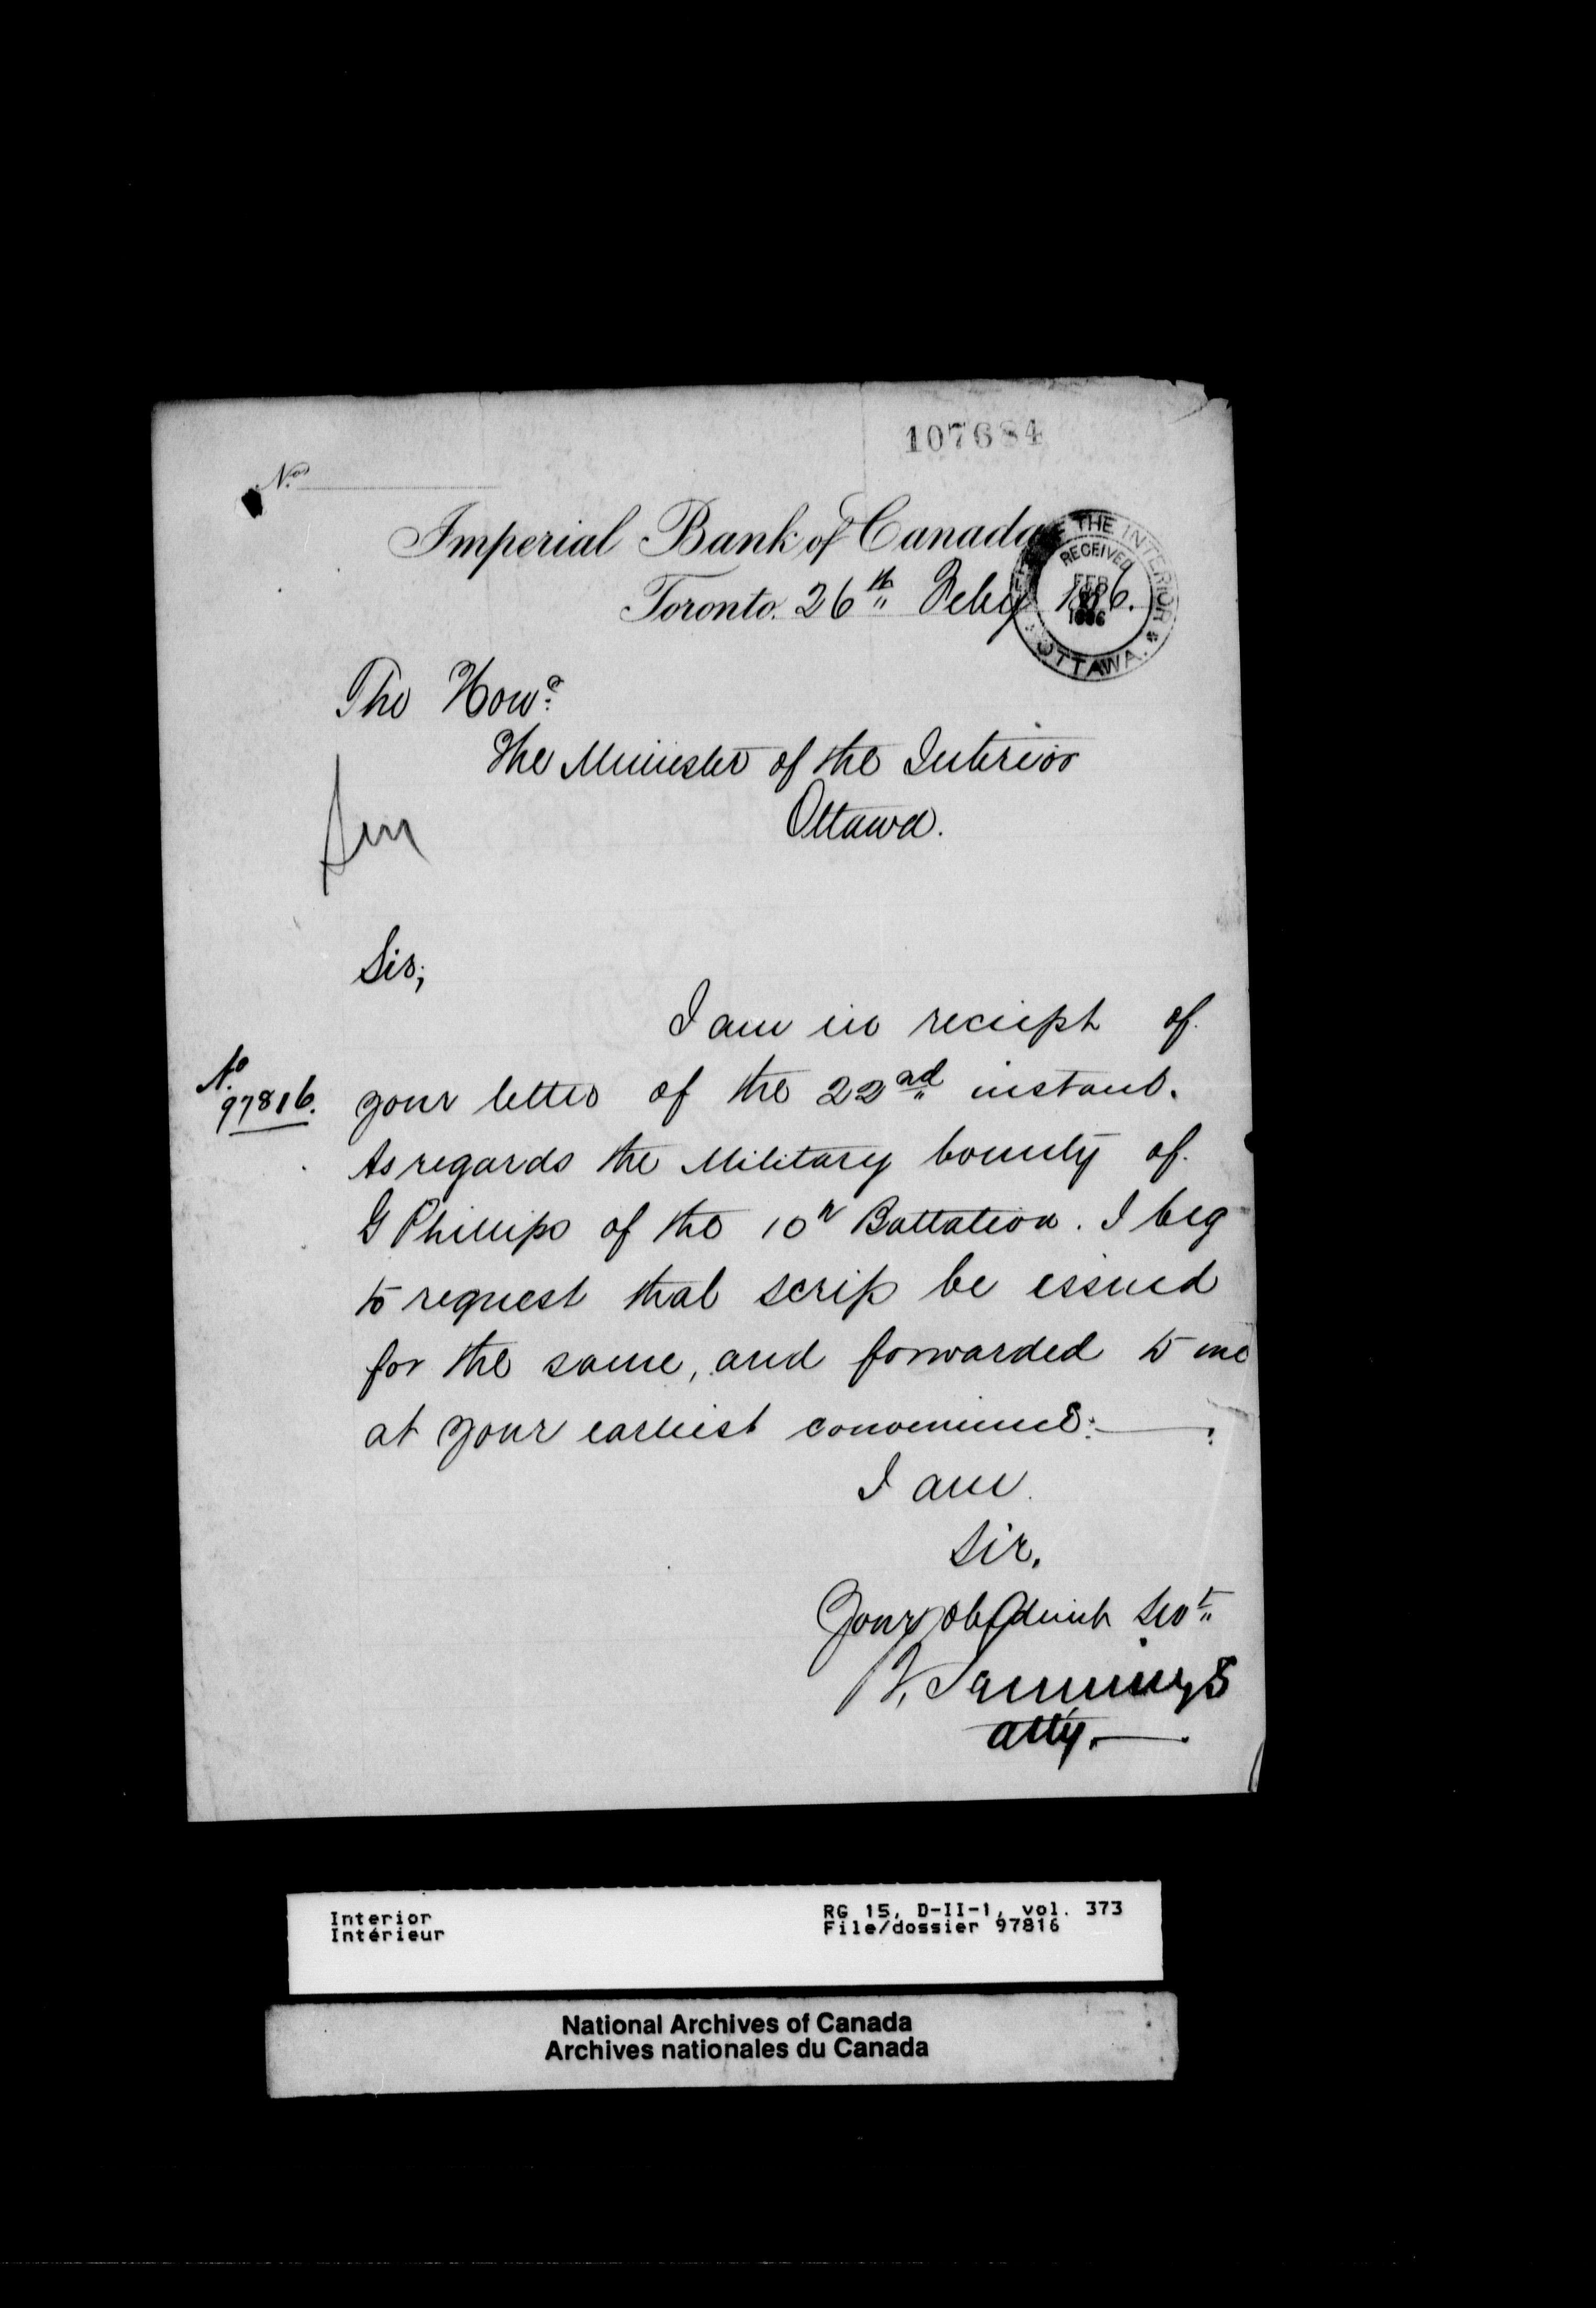 107684
No.
Imperial Bank of Canada
Toronto. 26th Feby 1886.
THE INTERIOR
RECEIVED
FEB
1886
OTTAWA.
The Hon.
The Minister of the Interior
Ottawa.
Sir;
I am in reciept of
No.
97816.
your letter of the 22nd instant.
As regards the Military bounty of
G Phillips of the 10th Battalion. I beg
to request that scrip be issued
for the same, and forwarded to me
at your earliest convenience.
I am
Sir.
Your obedient Svt
Jennings
atty.
Interior
Intérieur
RG 15, D-II-1, vol. 373
File/dossier 97816
National Archives of Canada
Archives nationales du Canada